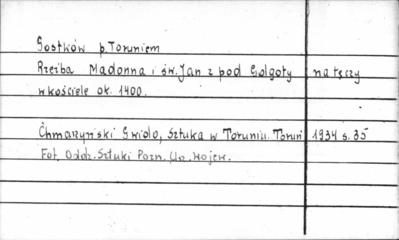 Gostków p. Toruniem
Rzeźba Madonna i św. Jan z pod Golgoty na tęczy
w kościele ok. 1400.
Chmarzyński Gwido, Sztuka w Toruniu. Toruń 1934 s. 35
Fot. Oddz. Sztuki Pozn. Urz. Wojew.